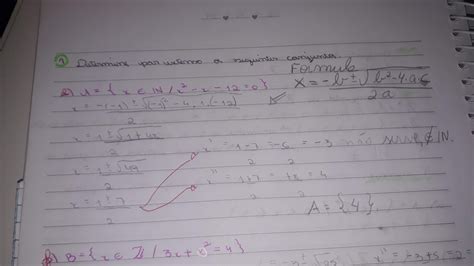 1) Determine por extenso o seguintes conjuntos.
Formula
X = -b ± √b²-4.a.c / 2a
a) A = { x ∈ IN / x² - x - 12 = 0 }
x = -(-1) ± √(-1)² - 4.1.(-12) / 2
x = 1 ± √1+48 / 2
x = 1 ± √49 / 2
x = 1 ± 7 / 2
x' = 1-7 / 2 = -6 / 2 = -3 não serve, ∉ IN.
x'' = 1+7 / 2 = +8 / 2 = 4
A = {4}
b) B = { x ∈ Z / 3x + x² = 4 }